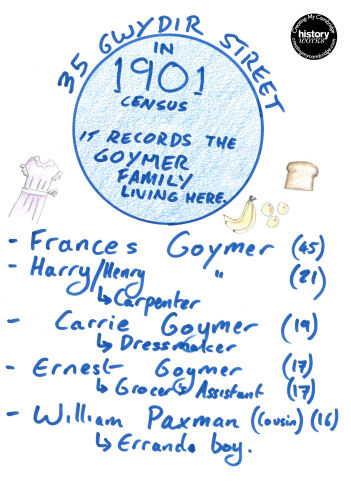 35 GWYDIR STREET
IN
1901
CENSUS
IT RECORDS THE
GOYMER
FAMILY
LIVING HERE.
Creating My Cambridge
history
WORKS
- Frances Goymer (45)
- Harry/Henry " (21)
↳ Carpenter
- Carrie Goymer (19)
↳ Dressmaker
- Ernest Goymer (17)
↳ Grocer's Assistant (17)
- William Paxman (cousin) (16)
↳ Errands boy.